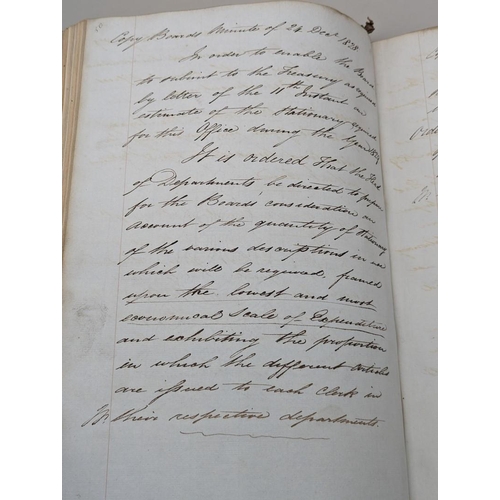 Copy Boards Minute of 24 Dec.r 1828
In order to enable the Board
to submit to the Treasury as required
by letter of the 11th Instant an
estimate of the Stationary required
for this Office during the Year 1829
It is ordered That the Head
of Departments be directed to prepare
for the Boards consideration an
account of the quantity of Stationary
of the various descriptions in use
which will be required, framed
upon the lowest and most
economical Scale of Expenditure
and exhibiting the proportion
in which the different articles
are issued to each Clerk in
their respective departments